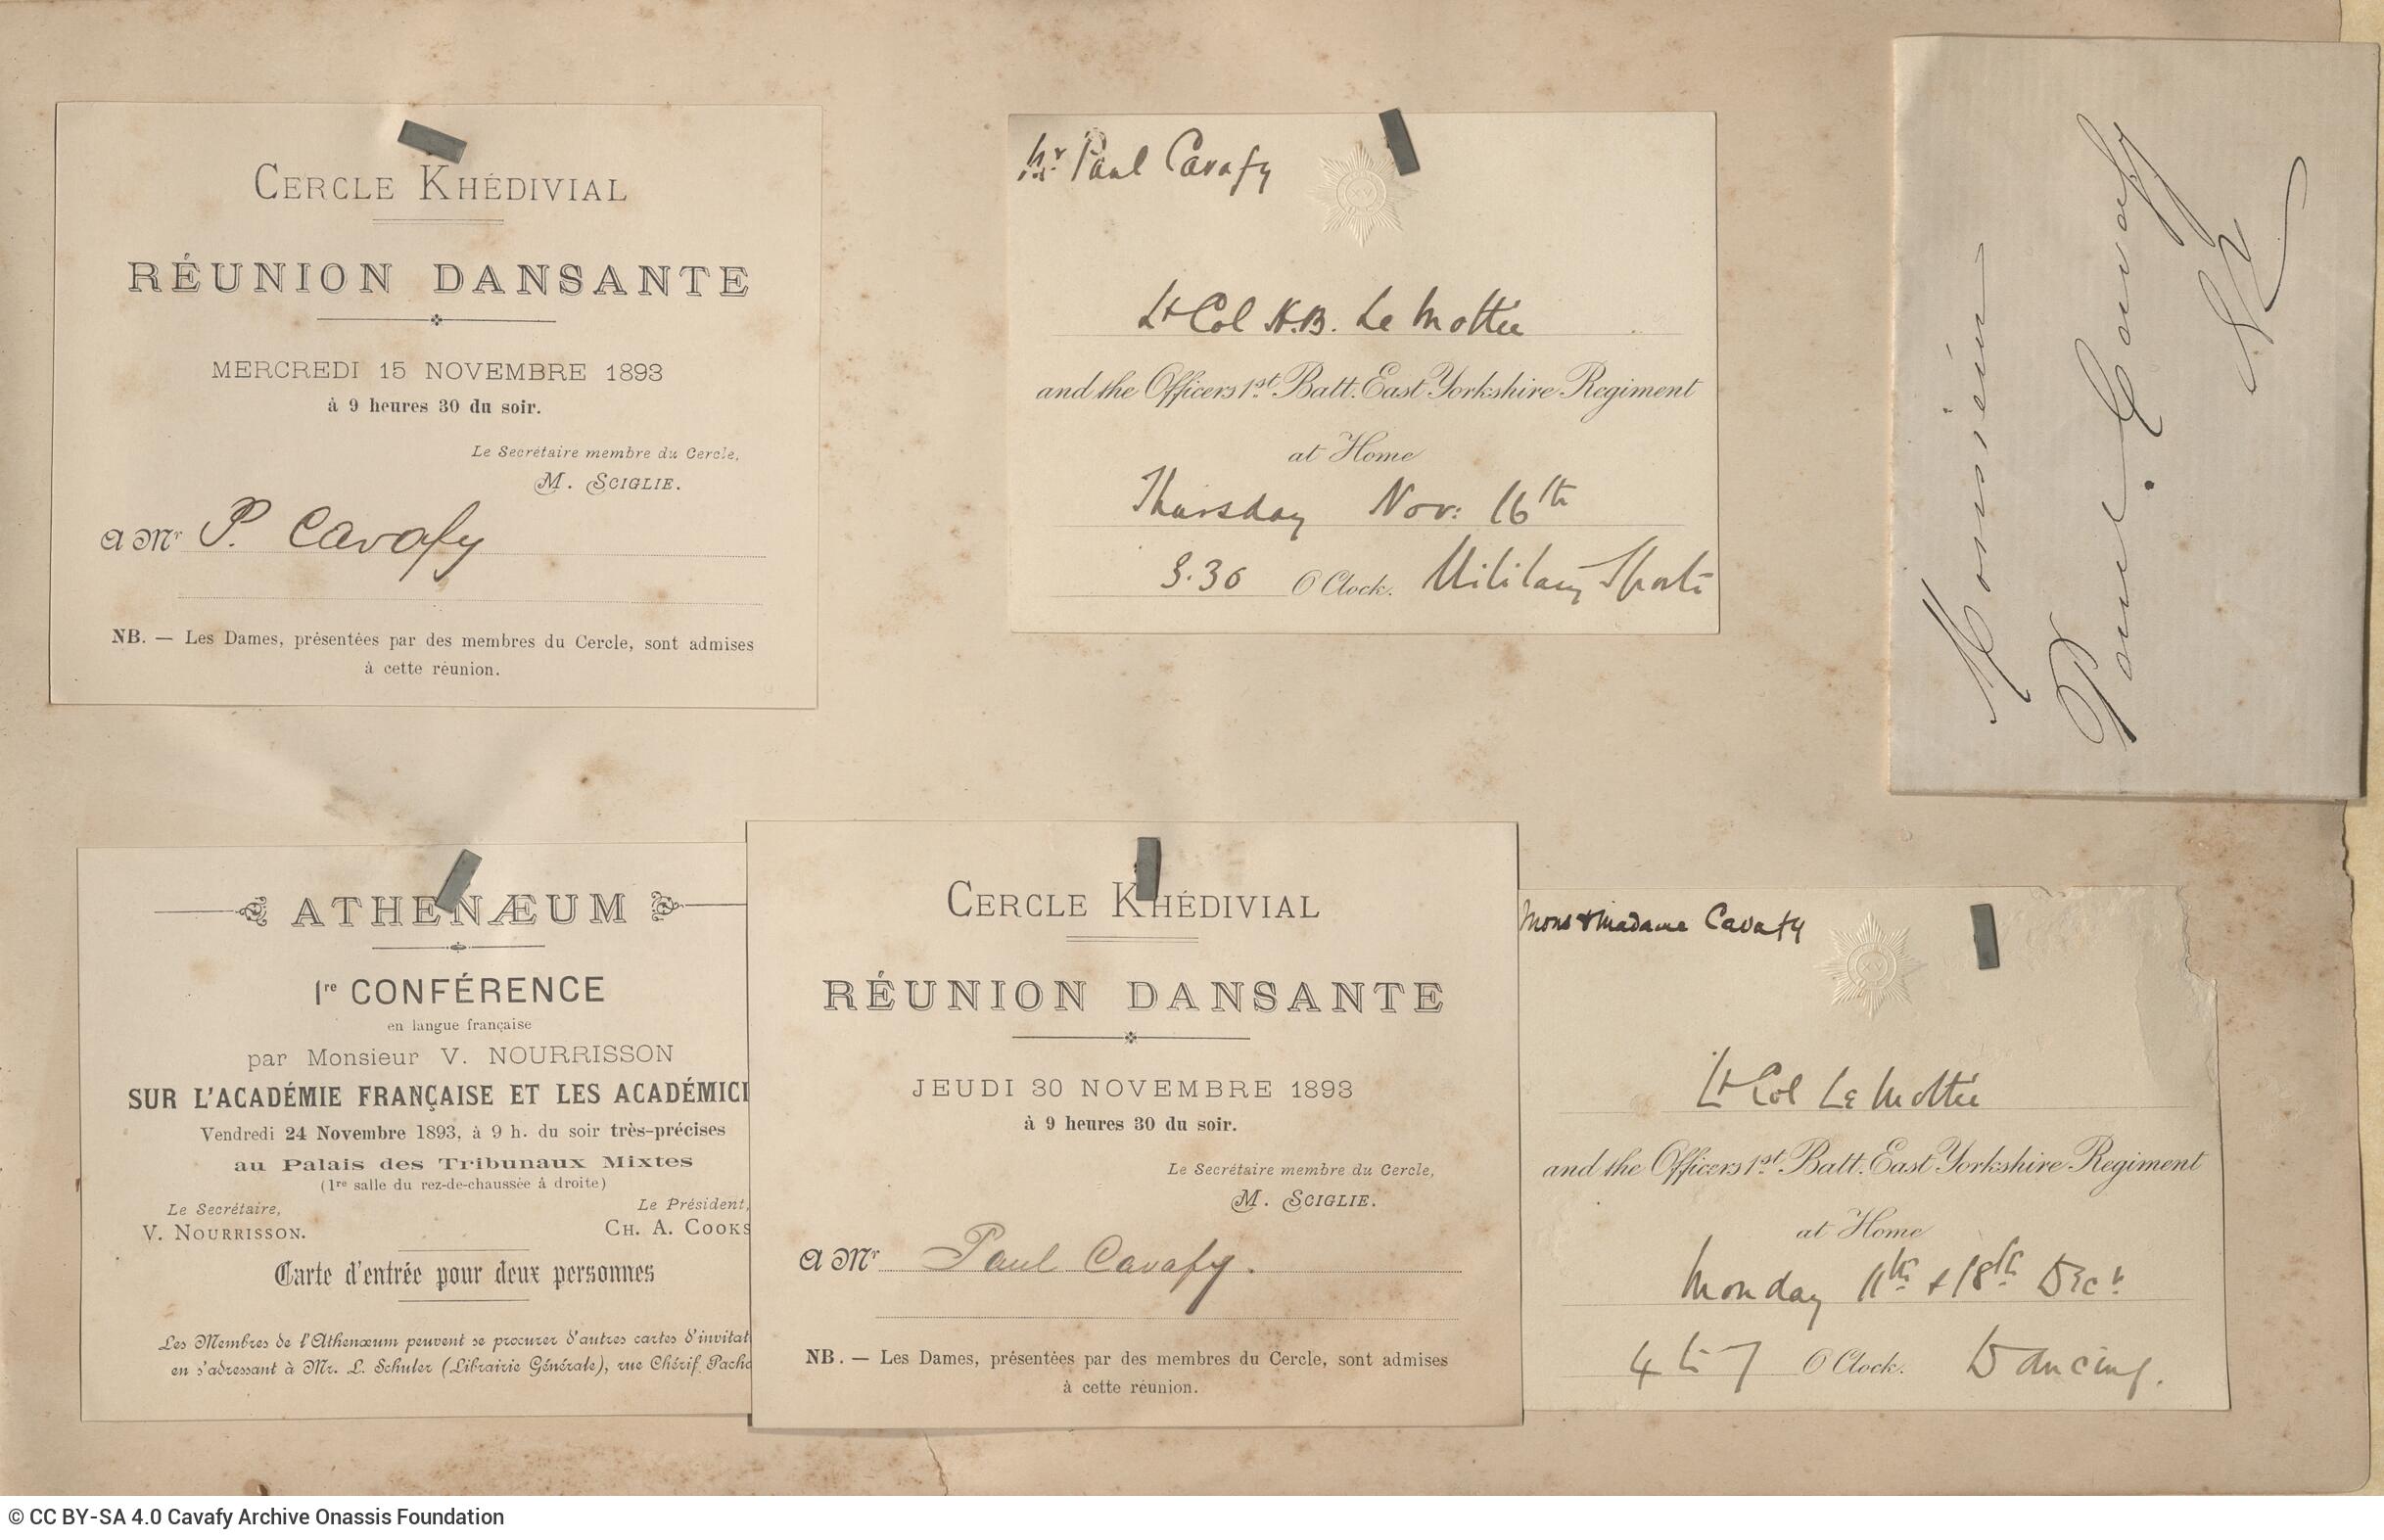 CERCLE KHÉDIVIAL
RÉUNION DANSANTE
MERCREDI 15 NOVEMBRE 1893
à 9 heures 30 du soir.
Le Secrétaire membre du Cercle,
M. SCIGLIE.
A Mr P. Cavafy
NB. — Les Dames, présentées par des membres du Cercle, sont admises
à cette réunion.
Mr Paul Cavafy
Lt Col H.B. Le Mottée
and the Officers 1st Batt. East Yorkshire Regiment
at Home
Thursday Nov: 16th
3.30 O'Clock. Military Sports
Monsieur
Paul. Cavafy
ATHENÆUM
1re CONFÉRENCE
en langue française
par Monsieur V. NOURRISSON
SUR L'ACADÉMIE FRANÇAISE ET LES ACADÉMICI
Vendredi 24 Novembre 1893, à 9 h. du soir très-précises
au Palais des Tribunaux Mixtes
(1re salle du rez-de-chaussée à droite)
Le Secrétaire,
V. NOURRISSON.
Le Président,
CH. A. COOKS
Carte d'entrée pour deux personnes
Les Membres de l'Athenæum peuvent se procurer d'autres cartes d'invitat
en s'adressant à Mr. L. Schuler (Librairie Générale), rue Chérif Pacha
CERCLE KHÉDIVIAL
RÉUNION DANSANTE
JEUDI 30 NOVEMBRE 1893
à 9 heures 30 du soir.
Le Secrétaire membre du Cercle,
M. SCIGLIE.
A Mr Paul Cavafy.
NB. — Les Dames, présentées par des membres du Cercle, sont admises
à cette réunion.
Mons & Madame Cavafy
Lt Col Le Mottée
and the Officers 1st Batt. East Yorkshire Regiment
at Home
Monday 11th & 18th Decr
4 to 7 O'Clock. Dancing.
© CC BY-SA 4.0 Cavafy Archive Onassis Foundation